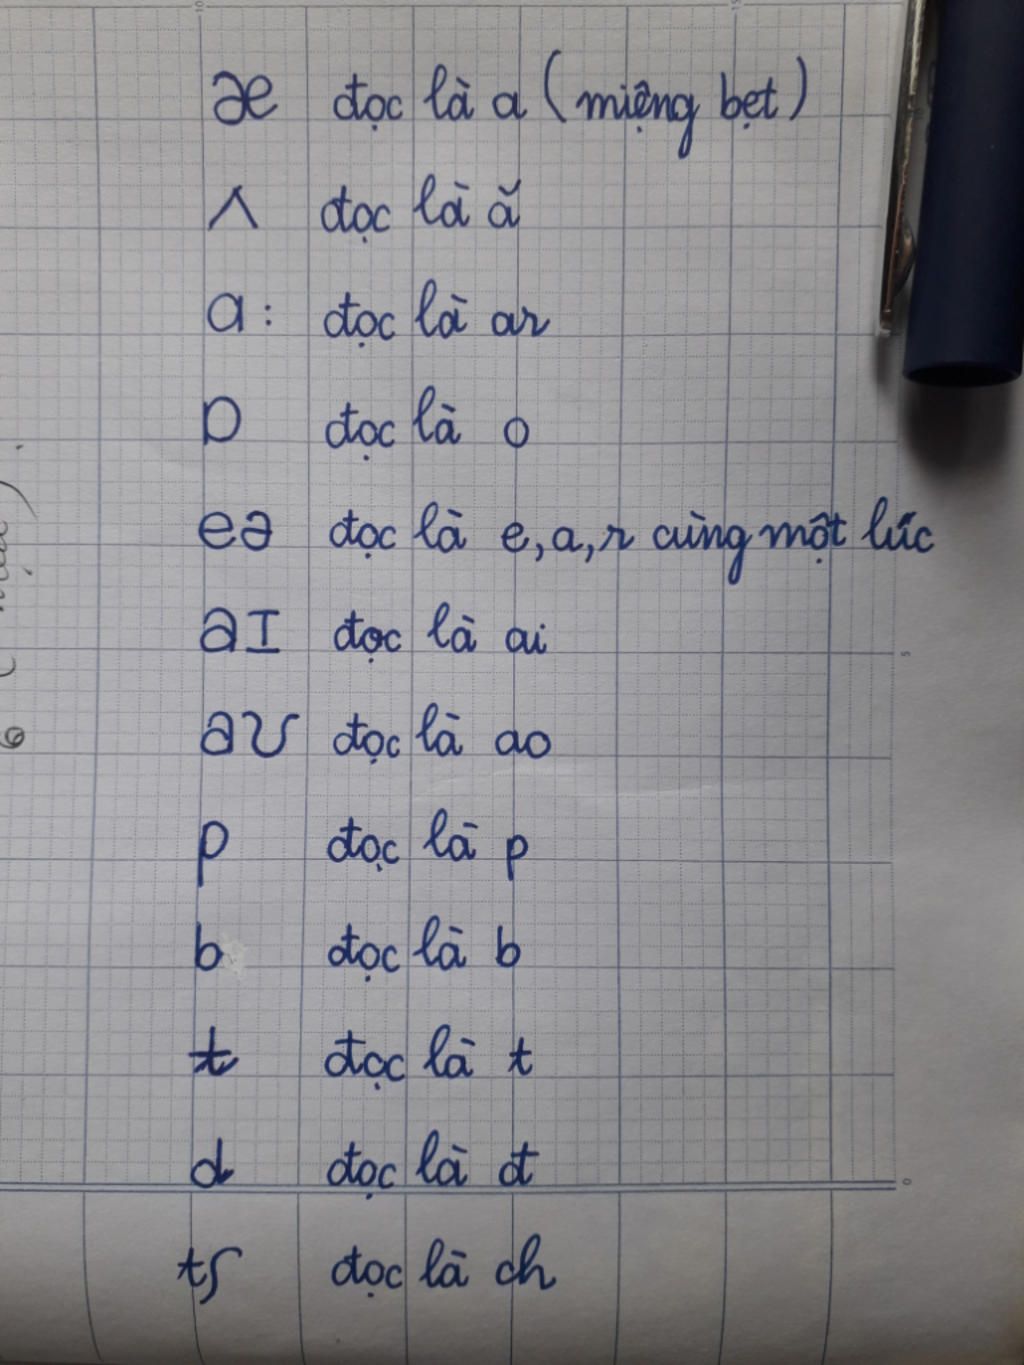 æ đọc là a (miệng bẹt)
ʌ đọc là ă
a: đọc là ar
ɒ đọc là o
eə đọc là e, a, r cùng một lúc
aɪ đọc là ai
aʊ đọc là ao
p đọc là p
b đọc là b
t đọc là t
d đọc là đ
tʃ đọc là ch